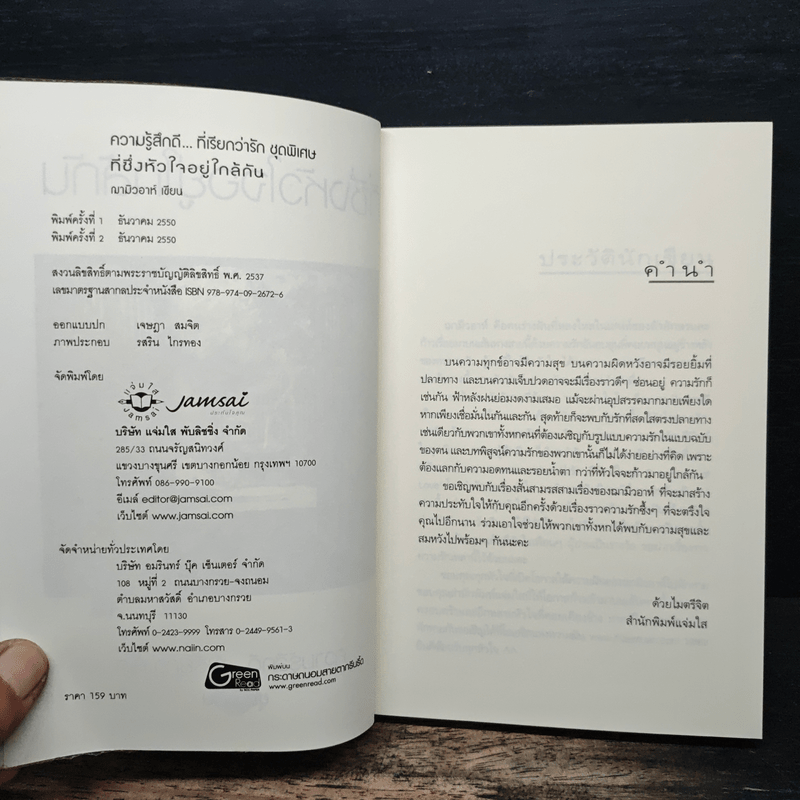 ความรู้สึกดี... ที่เรียกว่ารัก ชุดพิเศษ
ที่ซึ่งหัวใจอยู่ใกล้กัน
ฌามิวอาห์ เขียน
พิมพ์ครั้งที่ 1 ธันวาคม 2550
พิมพ์ครั้งที่ 2 ธันวาคม 2550
สงวนลิขสิทธิ์ตามพระราชบัญญัติลิขสิทธิ์ พ.ศ. 2537
เลขมาตรฐานสากลประจำหนังสือ ISBN 978-974-09-2672-6
ออกแบบปก เจษฎา สมจิต
ภาพประกอบ รสริน ไกรทอง
จัดพิมพ์โดย
แจ่มใส
Jamsai
Jamsai
บริษัท แจ่มใส พับลิชชิ่ง จำกัด
285/33 ถนนจรัญสนิทวงศ์
แขวงบางขุนศรี เขตบางกอกน้อย กรุงเทพฯ 10700
โทรศัพท์ 086-990-9100
อีเมล์ editor@jamsai.com
เว็บไซต์ www.jamsai.com
จัดจำหน่ายทั่วประเทศโดย
บริษัท อมรินทร์ บุ๊ค เซ็นเตอร์ จำกัด
108 หมู่ที่ 2 ถนนบางกรวย-จงถนอม
ตำบลมหาสวัสดิ์ อำเภอบางกรวย
จ.นนทบุรี 11130
โทรศัพท์ 0-2423-9999 โทรสาร 0-2449-9561-3
เว็บไซต์ www.naiin.com
Green
Read
พิมพ์บน
กระดาษถนอมสายตากรีนรี้ด
www.greenread.com
ราคา 159 บาท
คำนำ
บนความทุกข์อาจมีความสุข บนความผิดหวังอาจมีรอยยิ้มที่
ปลายทาง และบนความเจ็บปวดอาจจะมีเรื่องราวดีๆ ซ่อนอยู่ ความรักก็
เช่นกัน ฟ้าหลังฝนย่อมงดงามเสมอ แม้จะผ่านอุปสรรคมากมายเพียงใด
หากเพียงเชื่อมั่นในกันและกัน สุดท้ายก็จะพบกับรักที่สดใสตรงปลายทาง
เช่นเดียวกับพวกเขาทั้งหกคนที่ต้องเผชิญกับรูปแบบความรักในแบบฉบับ
ของตน และบทพิสูจน์ความรักของพวกเขานั้นก็ไม่ได้ง่ายอย่างที่คิด เพราะ
ต้องแลกกับความอดทนและรอยน้ำตา กว่าที่หัวใจจะก้าวมาอยู่ใกล้กัน
ขอเชิญพบกับเรื่องสั้นสามรสสามเรื่องของฌามิวอาห์ ที่จะมาสร้าง
ความประทับใจให้กับคุณอีกครั้งด้วยเรื่องราวความรักซึ้งๆ ที่จะตรึงใจ
คุณไปอีกนาน ร่วมเอาใจช่วยให้พวกเขาทั้งหกได้พบกับความสุขและ
สมหวังไปพร้อมๆ กันนะคะ
ด้วยไมตรีจิต
สำนักพิมพ์แจ่มใส